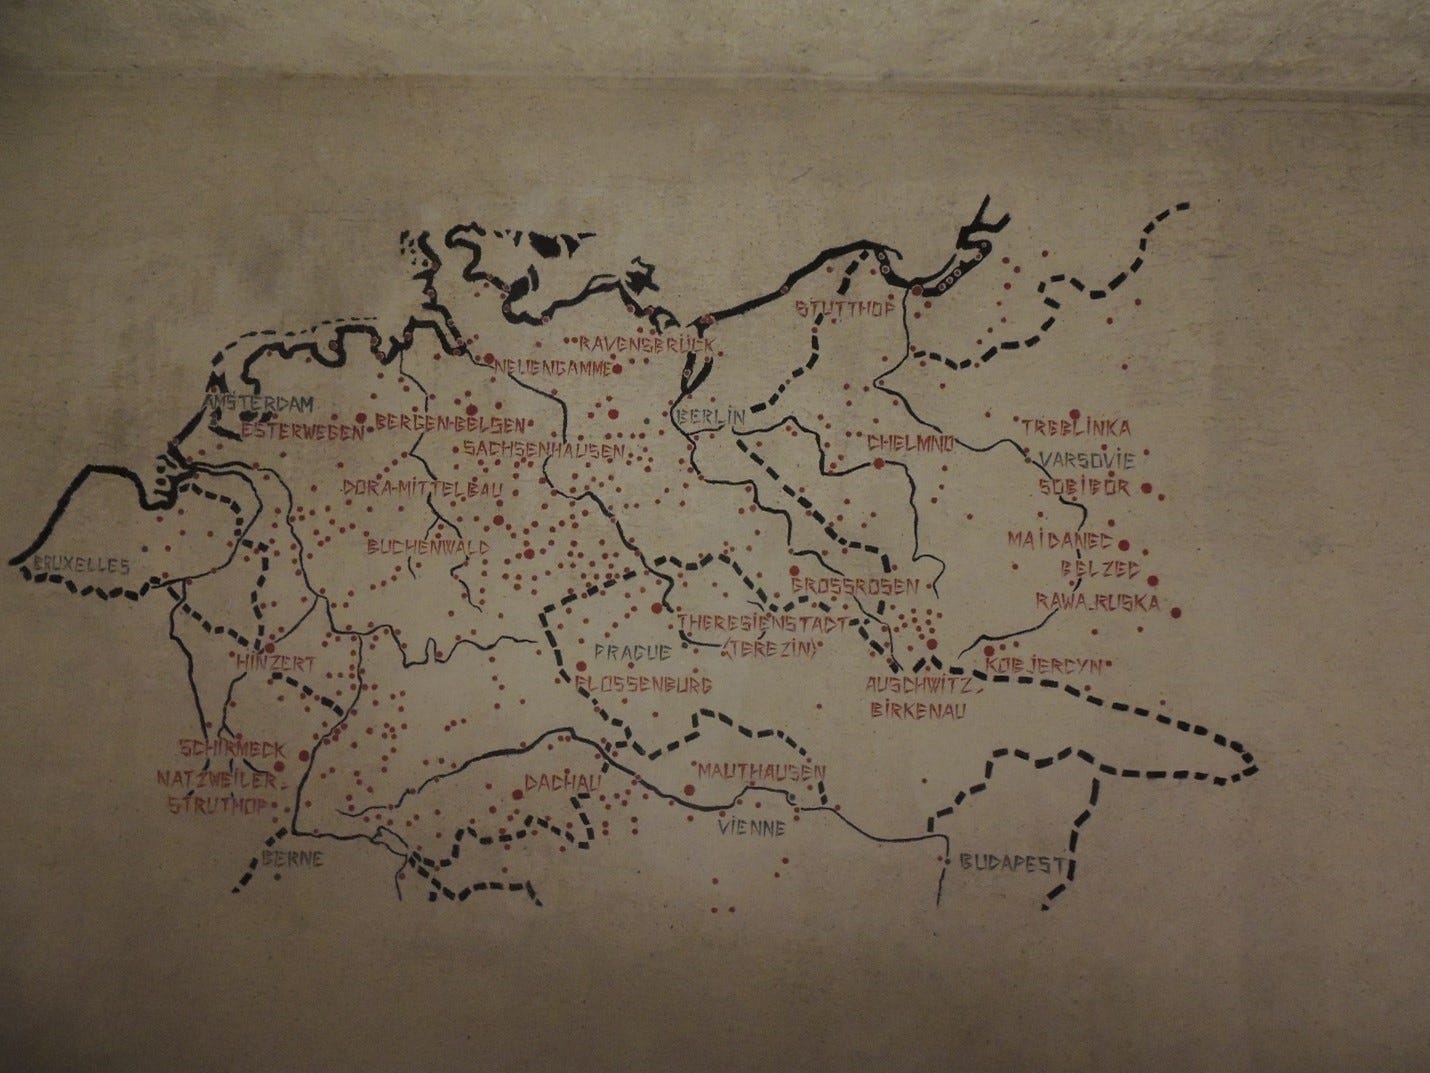 STUTTHOF
RAVENSBRÜCK
NEUENGAMME
AMSTERDAM
BERLIN
ESTERWEGEN
BERGEN-BELSEN
TREBLINKA
SACHSENHAUSEN
CHELMNO
VARSOVIE
DORA-MITTELBAU
SOBIBOR
BUCHENWALD
MAIDANEC
BRUXELLES
BELZEC
GROSSROSEN
RAWA-RUSKA
THERESIENSTADT
(TEREZIN)
PRAGUE
HINZERT
KOBJERCYN
FLOSSENBURG
AUSCHWITZ-
BIRKENAU
SCHIRMECK
NATZWEILER-
STRUTHOF
DACHAU
MAUTHAUSEN
VIENNE
BERNE
BUDAPEST